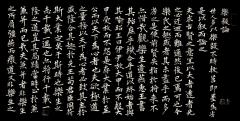 樂毅論
世人多以樂毅不時拔莒即墨為劣
是以叙而論之
夫求古賢之意宜以大者遠者先
之必迂迴而難通然後已焉可也今
樂氏之趣或者其未盡乎而多劣
之是使前賢失指於將來不亦
惜哉觀樂生遺燕惠王書
其殆庶乎機合乎道以終始者與
其喻昭王曰伊尹放大甲而不疑大
甲受放而不怨是存大業於至
公而以天下為心者也夫欲極道
之量務以天下為心者必致其主
於盛隆合其趣於先王苟君臣同符
斯大業定矣于斯時也樂生之
志千載一遇也亦將行千載一
隆之道豈其局蹟當時止於
兼并而已哉夫兼并者非樂生之
所屑彊燕而廢道又非樂生之